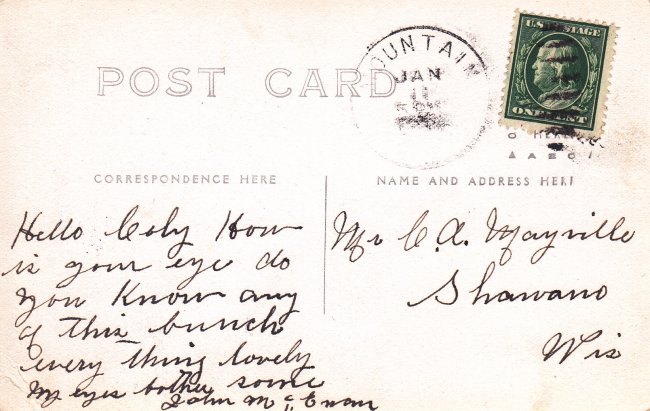 POST CARD
OUNTAIN
JAN
11
U.S. POSTAGE
ONE CENT
CORRESPONDENCE HERE
NAME AND ADDRESS HERE
Hello Coly How
is your eye do
you Know any
of this bunch
every thing lovely
my eyes bother some
John McEwan
Mr C. A. Mayville
Shawano
Wis